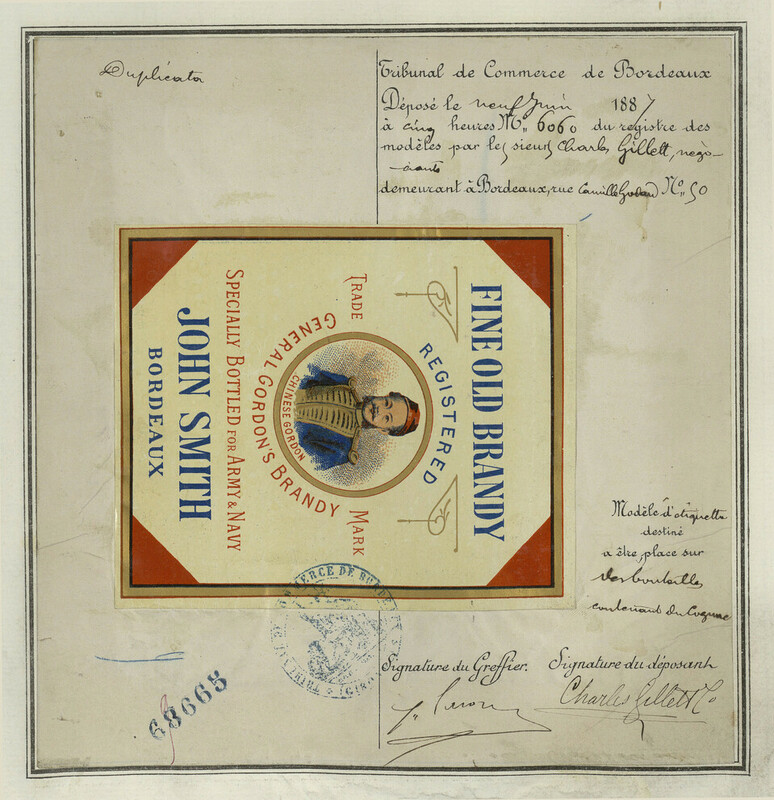 Duplicata
Tribunal de Commerce de Bordeaux
Déposé le neuf Juin 1887
à cinq heures No. 6060 du registre des
modèles par les sieurs Charles Gillett, négo-
ciants
demeurant à Bordeaux, rue Camille Godard No. 50
FINE OLD BRANDY
REGISTERED
TRADE MARK
CHINESE GORDON
GENERAL GORDON'S BRANDY
SPECIALLY BOTTLED FOR ARMY & NAVY
JOHN SMITH
BORDEAUX
Modèle d'étiquette
destiné
a être place sur
des bouteilles
contenant du Cognac
COMMERCE DE BORDEAUX
Signature du Greffier. Signature du déposant
Charles Gillett & Co
68668